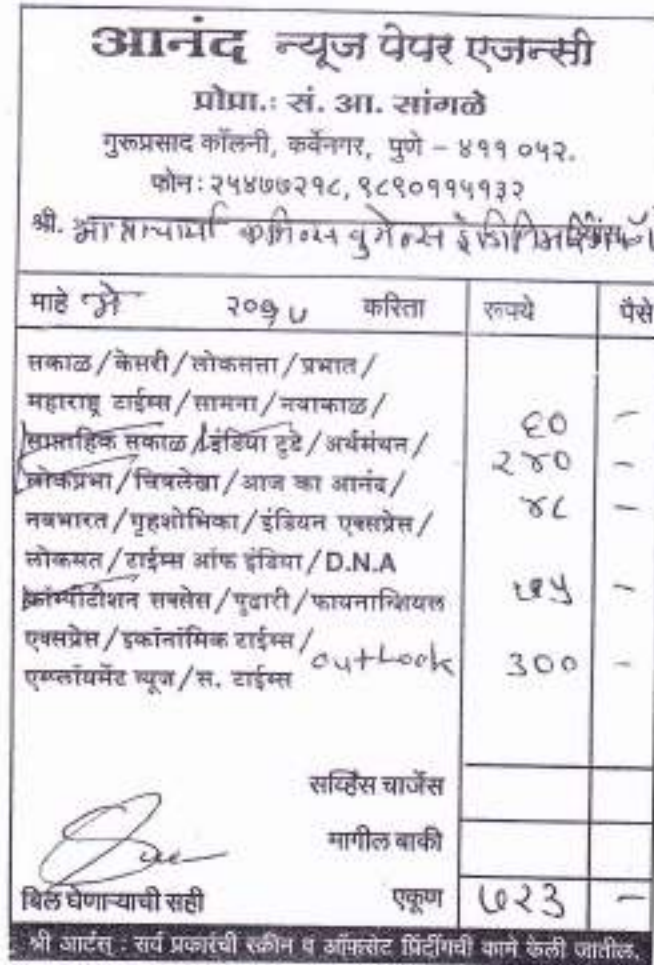 आनंद न्यूज पेपर एजन्सी
प्रोप्रा.: सं. आ. सांगळे
गुरुप्रसाद कॉलनी, कर्वेनगर, पुणे – ४११ ०५२.
फोन : २५४७७२१८, ९८९०११५१३२
श्री.
माहे मे २०१५ करिता रुपये पैसे
सकाळ/केसरी/लोकसत्ता/प्रभात/
महाराष्ट्र टाईम्स/सामना/नवाकाळ/ ६० –
साप्ताहिक सकाळ/इंडिया टुडे/अर्थमंथन/ २४० –
लोकप्रभा/चित्रलेखा/आज का आनंद/ ४८ –
नवभारत/गृहशोभिका/इंडियन एक्सप्रेस/
लोकमत/टाईम्स ऑफ इंडिया/D.N.A
कॉम्पीटीशन सक्सेस/पुढारी/फायनान्शियल ७५ –
एक्सप्रेस/इकॉनॉमिक टाईम्स/
एम्प्लॉयमेंट न्यूज/स. टाईम्स outLook ३०० –
सर्व्हिस चार्जेस
मागील बाकी
बिल घेणाऱ्याची सही एकूण ७२३ –
श्री आर्टस् : सर्व प्रकारंची स्क्रीन व ऑफसेट प्रिंटींगची कामे केली जातील.